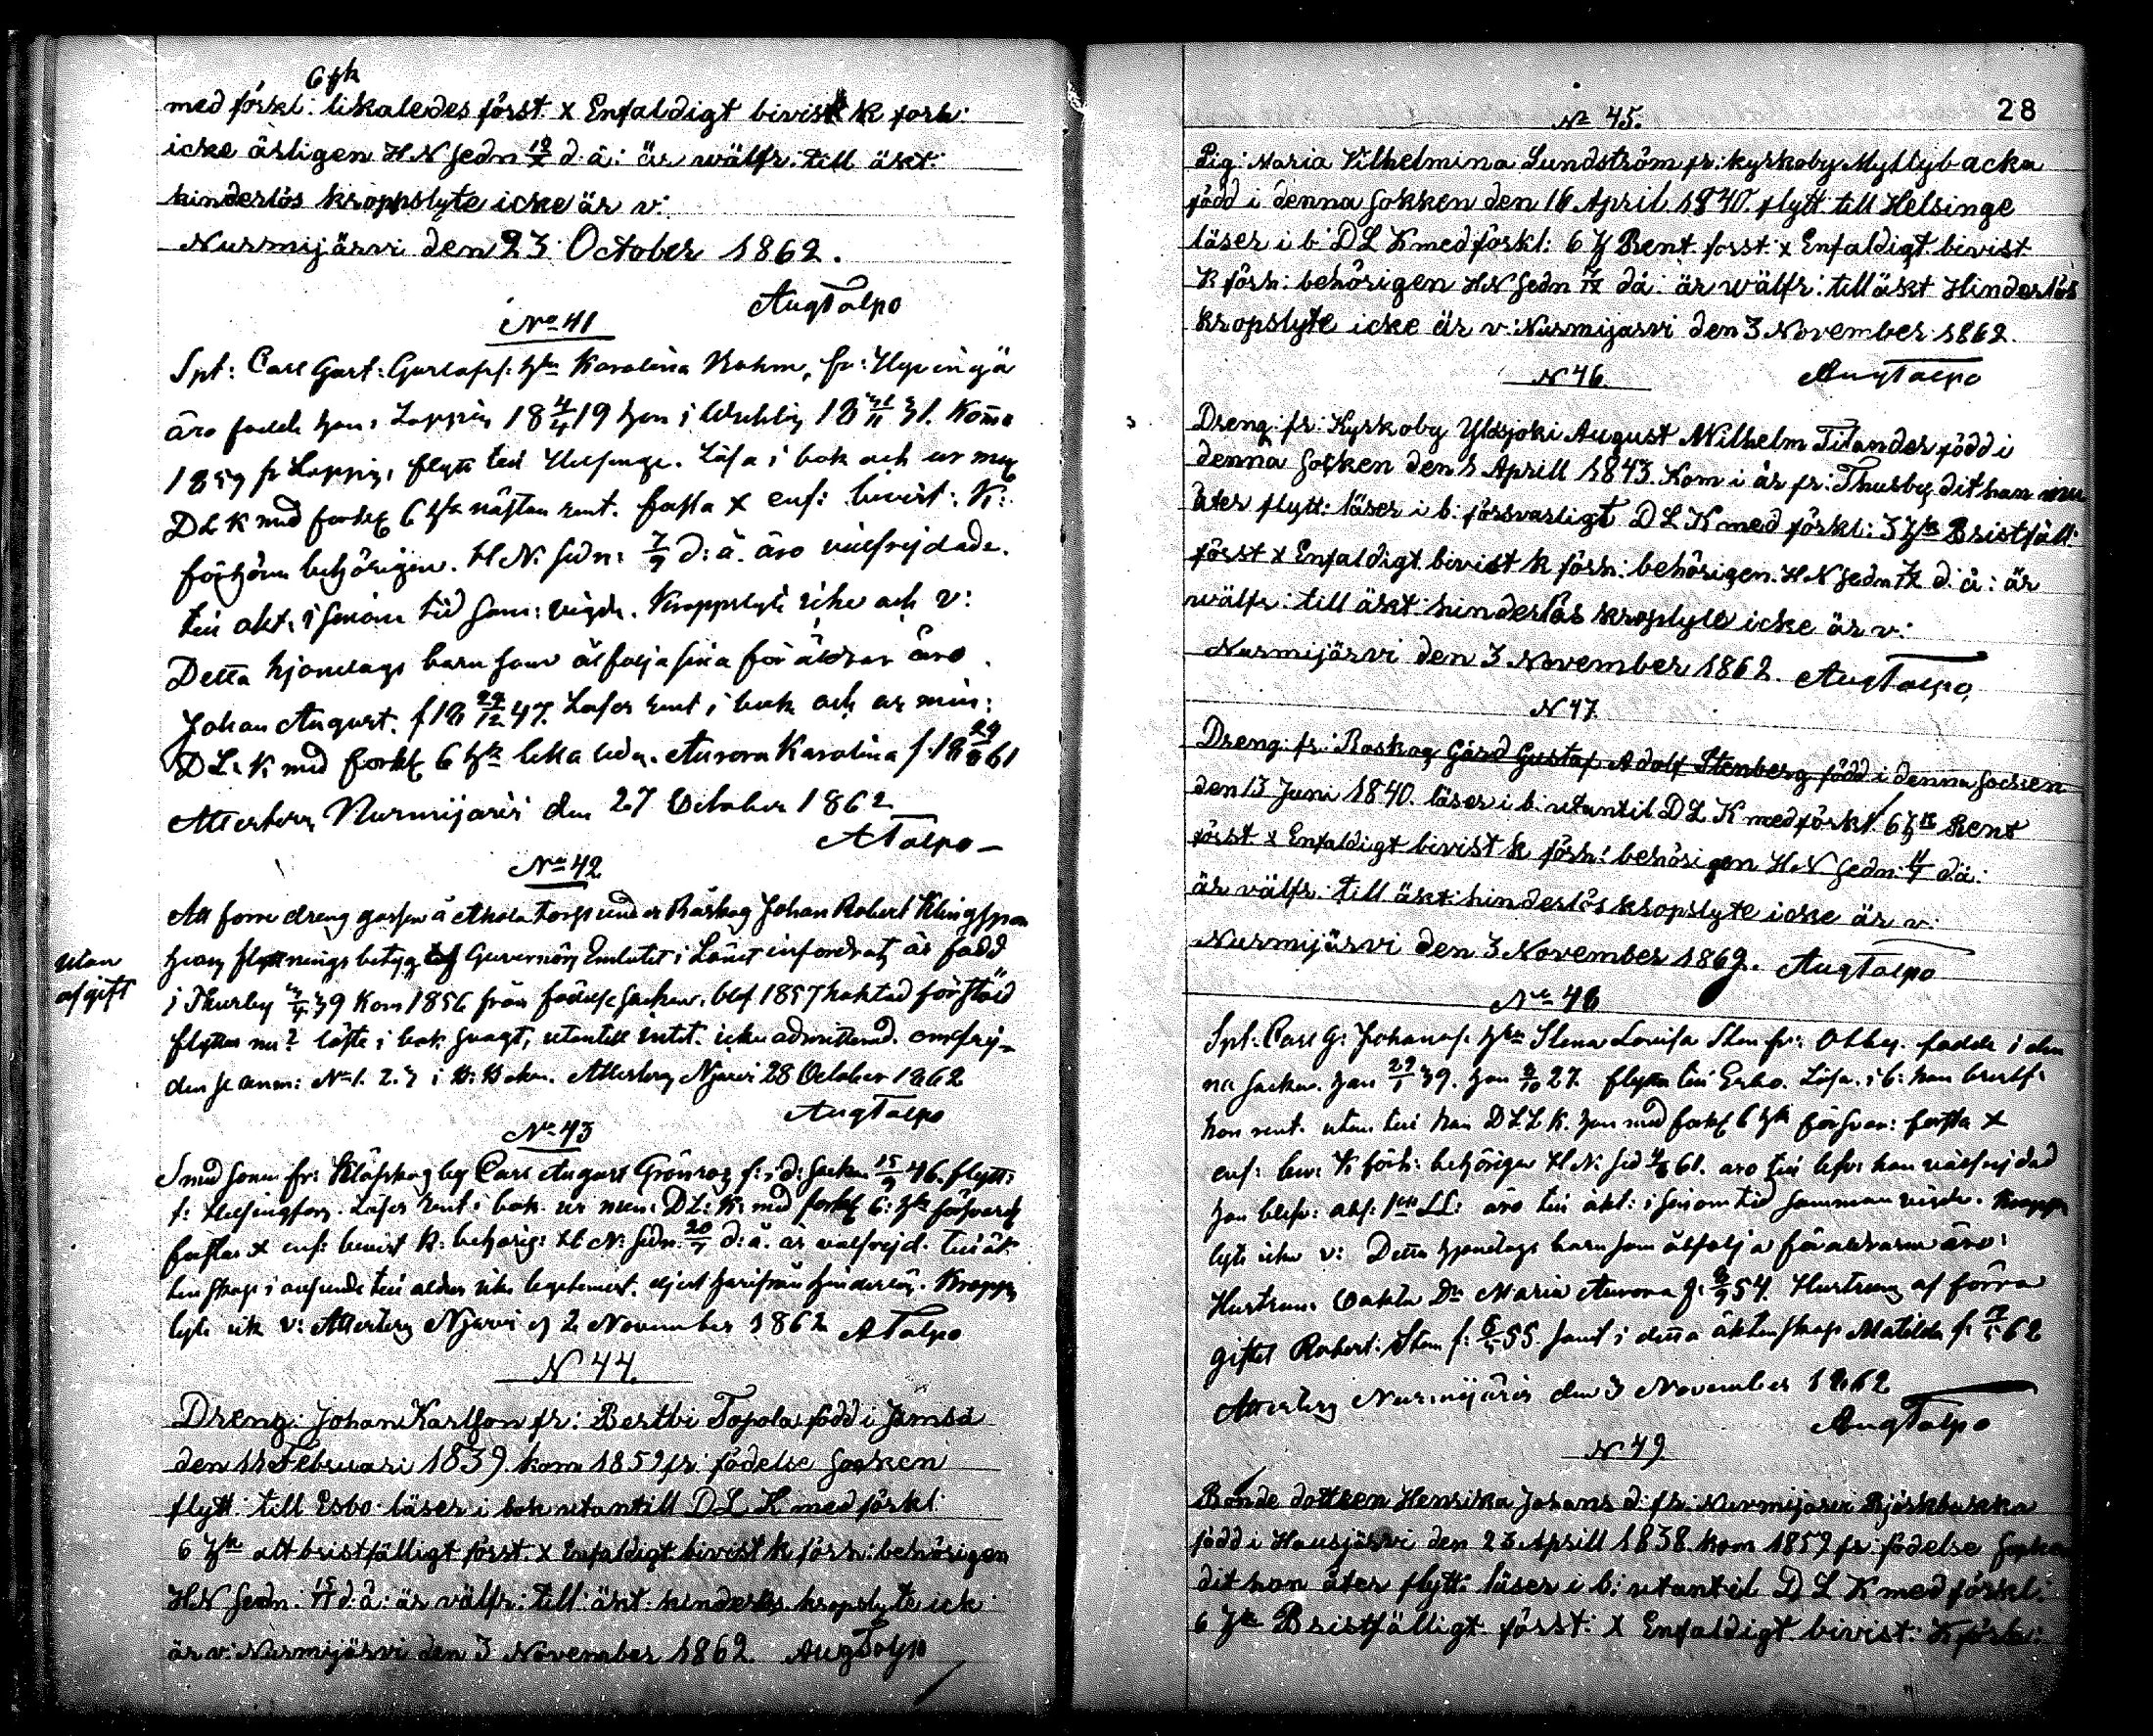 6 hk
med förskl: likaledes först. x Enfaldigt bivist k förh:
icke ärligen HN sedn 19/X d.å: är wälfr: till äkt:
hinderlös kroppslyte icke är v:
Nurmijärvi den 23 October 1862.
AugTalpo
No 41
Spt: Carl Gust: Hn Karolina fr: Hyvingä
äro födde han i Loppis 18 4/4 19 hon i 18 31. Komo
1859 fr Loppis, flytt till Helsinge. Läsa i bok och ur min
DLK med förkl 6 hk nästan rent. förstå x enf: bivist: K:
förhören behörigen. HN. sedn: 7/9 d: å. äro välfrejdade.
till äkt: i tid sam: vigde. Kroppslyte icke och v:
Detta hjonelags barn som åtfölja sina föräldrar äro
Johan August. f 18 29/12 47. Läser rent i bok och ur min:
D L: K: med förkl 6 hk lika leds. Aurora Karolina f. 18 61
Attesterar Nurmijärvi den 27 October 1862
ATalpo
No 42
Att förre dreng gossen å torp under Råskog Johan Robert Klingspor
hvars flyttnings betyg Guvernörs Embetet i Länet infordrat är född
i Thusby 39 Kom 1856 från födelse socken. blef 1857 häktad förstås
utan
afgift
flytten nu? läste i bok svagt, utantill intet. icke admitterad.
den se anm: No 1. 2. 3 i K: Boken. Attesteras Njärvi 28 October 1862
AugTalpo
No 43
Smed sonen fr: by Carl August Grönroos f: i d: socken 15/9 46. flytt:
t: Helsingfors. Läser rent i bok. ur min: DL: K: med förkl 6: hk försvarl
förstår x enf: bevist K: behörig: HN: sedn. 20/7 d: å. är välfrejd. till äk-
tenskap i anseende till ålder icke hinderlös. Kropps
lyte ick v: Attesteras Njärvi d 2 November 1862 ATalpo
N 44.
Dreng: Johan Karlson fr: Bertbi Topola född i Jämsä
den 11 Februari 1839. kom 1859 fr: födelse socken
flytt: till Esbo läser i bok utantill D L K med förkl:
6 hk alt bristfälligt först. x Enfaldigt bivist k förh: behörigen
HN Sedn: d: å: är välfr: till äkt: hinderls kropslyte ick
är v: Nurmijärvi den 3 November 1862. AugTalpo
28
No 45.
Pig: Maria Vilhelmina Lundström fr: kyrkoby Myllybacka
född i denna Socken den 16 April 1840. flytt: till Helsinge
läser i b: D L K med förkl: 6 H Rent. först: x Enfaldigt bivist
k förh: behörigen HN Sedn d å: är wälfr: till äkt Hinderlös
kropslyte icke är v: Nurmijärvi den 3 November 1862.
AugTalpo
N 46.
Dreng: fr: Kyrkoby Ylisjoki August Wilhelm Titander född i
denna Socken den 1 Aprill 1843. Kom i år fr: Thusby dit han nu
åter flytt: läser i b: försvarligt D L K med förkl: 3 hk Bristfäll:
först x Enfaldigt bivist k förh: behörigen. HN Sedn d: å: är
wälfr: till äkt: hinderlös kroplyte icke är v:
Nurmijärvi den 3 November 1862. AugTalpo
N 47.
Dreng: fr: Raskog Gård Gustaf Adolf Stenberg född i denna Socken
den 13 Juni 1840. läser i b: utantil D L K med förkl: 6 hk Rent
först. x Enfaldigt bivist k förh: behörigen HN Sedn: d. å:
är välfr: till äkt: hinderlös kropslyte icke är v:
Nurmijärvi den 3 November 1862. AugTalpo
No 48
Spt: Carl G: Johansf. Hn Stina Lovisa Sten fr: födde i den
na socken. han 29/1 39. hon 27. flytta till Esbo. Läsa. i b: han
hon rent. utan till han D L L K. hon med förkl 6 hk försvar: förstå x
enf: bev: K: förh: behörigen HN: sed 61. äro han välfrejdad
hon äro till äkt: i tid samman vigde. Kropps
lyte icke v: Detta hjonelags barn som åtfölja föräldrarne äro:
Hustruns Oäkta Dr Maria Aurora f: 54. Hustruns af förra
giftet Robert Sten f: 55. samt i detta äktenskap Matilda f: 62
Attesteras Nurmijärvi den 3 November 1862
AugTalpo
N 49.
Bonde dotteren Henrika Johans d: fr: Nurmijärvi Björkbacka
född i Hausjärvi den 23 Aprill 1838. kom 1859 fr: födelse Socken
dit hon åter flytt: läser i b: utantil D L K med förkl:
6 hk Bristfälligt först: x Enfaldigt bivist: K förh: